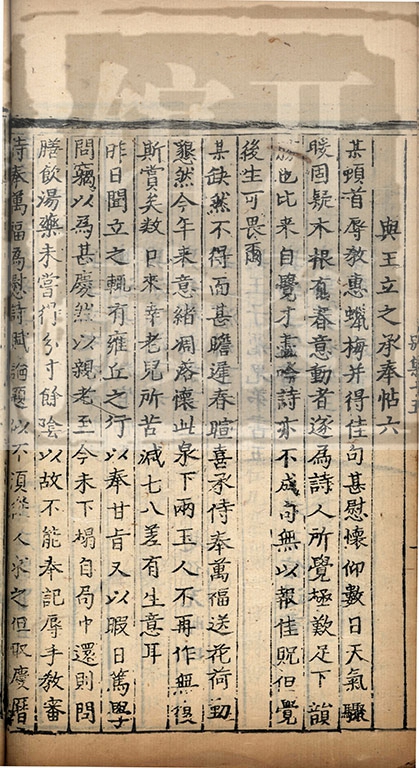 與王立之承奉帖六
某頓首辱教惠蠟梅并得佳句甚慰懷仰數日天氣驟
暖固疑木根有春意動者遂為詩人所覺極歎足下韻
勝也比来自覺才盡吟詩亦不成句無以報佳貺但覺
後生可畏爾
某缺然不得面甚瞻遲春暄喜承侍奉萬福送花荷動
懇然今年来意緒凋落懷此泉下兩玉人不再作無復
斯賞矣数日来幸老兒所苦減七八差有生意耳
昨日聞立之輒有雍丘之行以奉甘旨又以暇日篤學
問竊以為甚慶然以親老至今未下榻自局中還則問
膳飲湯藥未嘗得分寸餘陰以故不能奉記辱手教審
侍奉萬福為慰許賦題以不須人求之但取慶曆